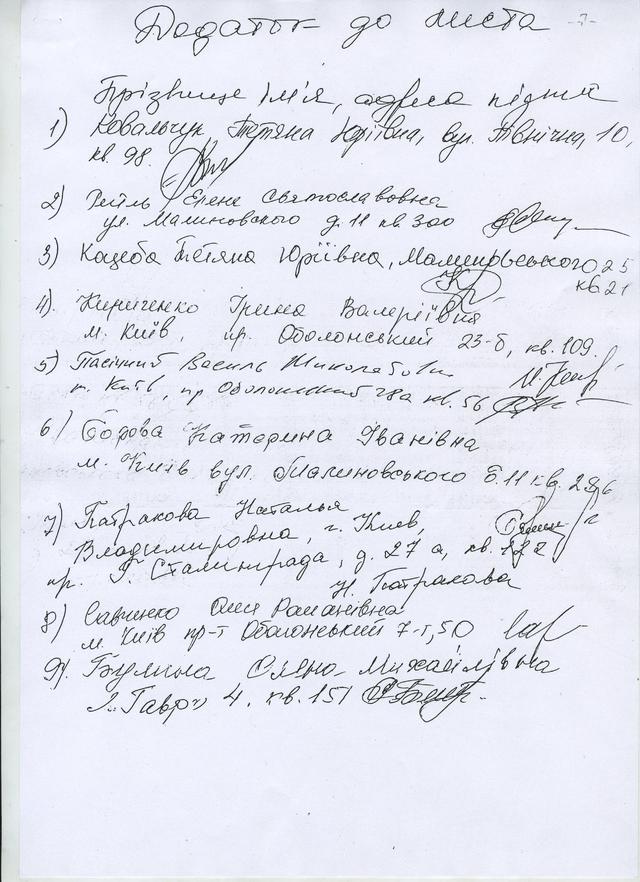 Додаток до листа -7-
Прізвище Ім'я, адреса підпис
1) Ковальчук Тетяна Юріївна, вул. Північна, 10,
кв. 98.
2) Елена Святославовна
ул. Малиновского д. 11 кв. 300
3) Кацеба Тетяна Юріївна, Малиновського 25
кв. 21
4) Кириченко Ірина Валеріївна
м. Київ, пр. Оболонський 23-б, кв. 109.
5) Пасічний Василь Миколайович
м. Київ, пр Оболонский 28а кв. 56
6) Катерина Іванівна
м. Київ вул. Малиновського б. 11 кв. 286
7) Патракова Наталья
Владимировна, г. Киев,
пр. Г. Сталинграда, д. 27 а, кв. 122
Н. Патракова
8) Савченко Романівна
м. Київ пр-т Оболонський 7-г, 50
9) Михайлівна
4. кв. 151